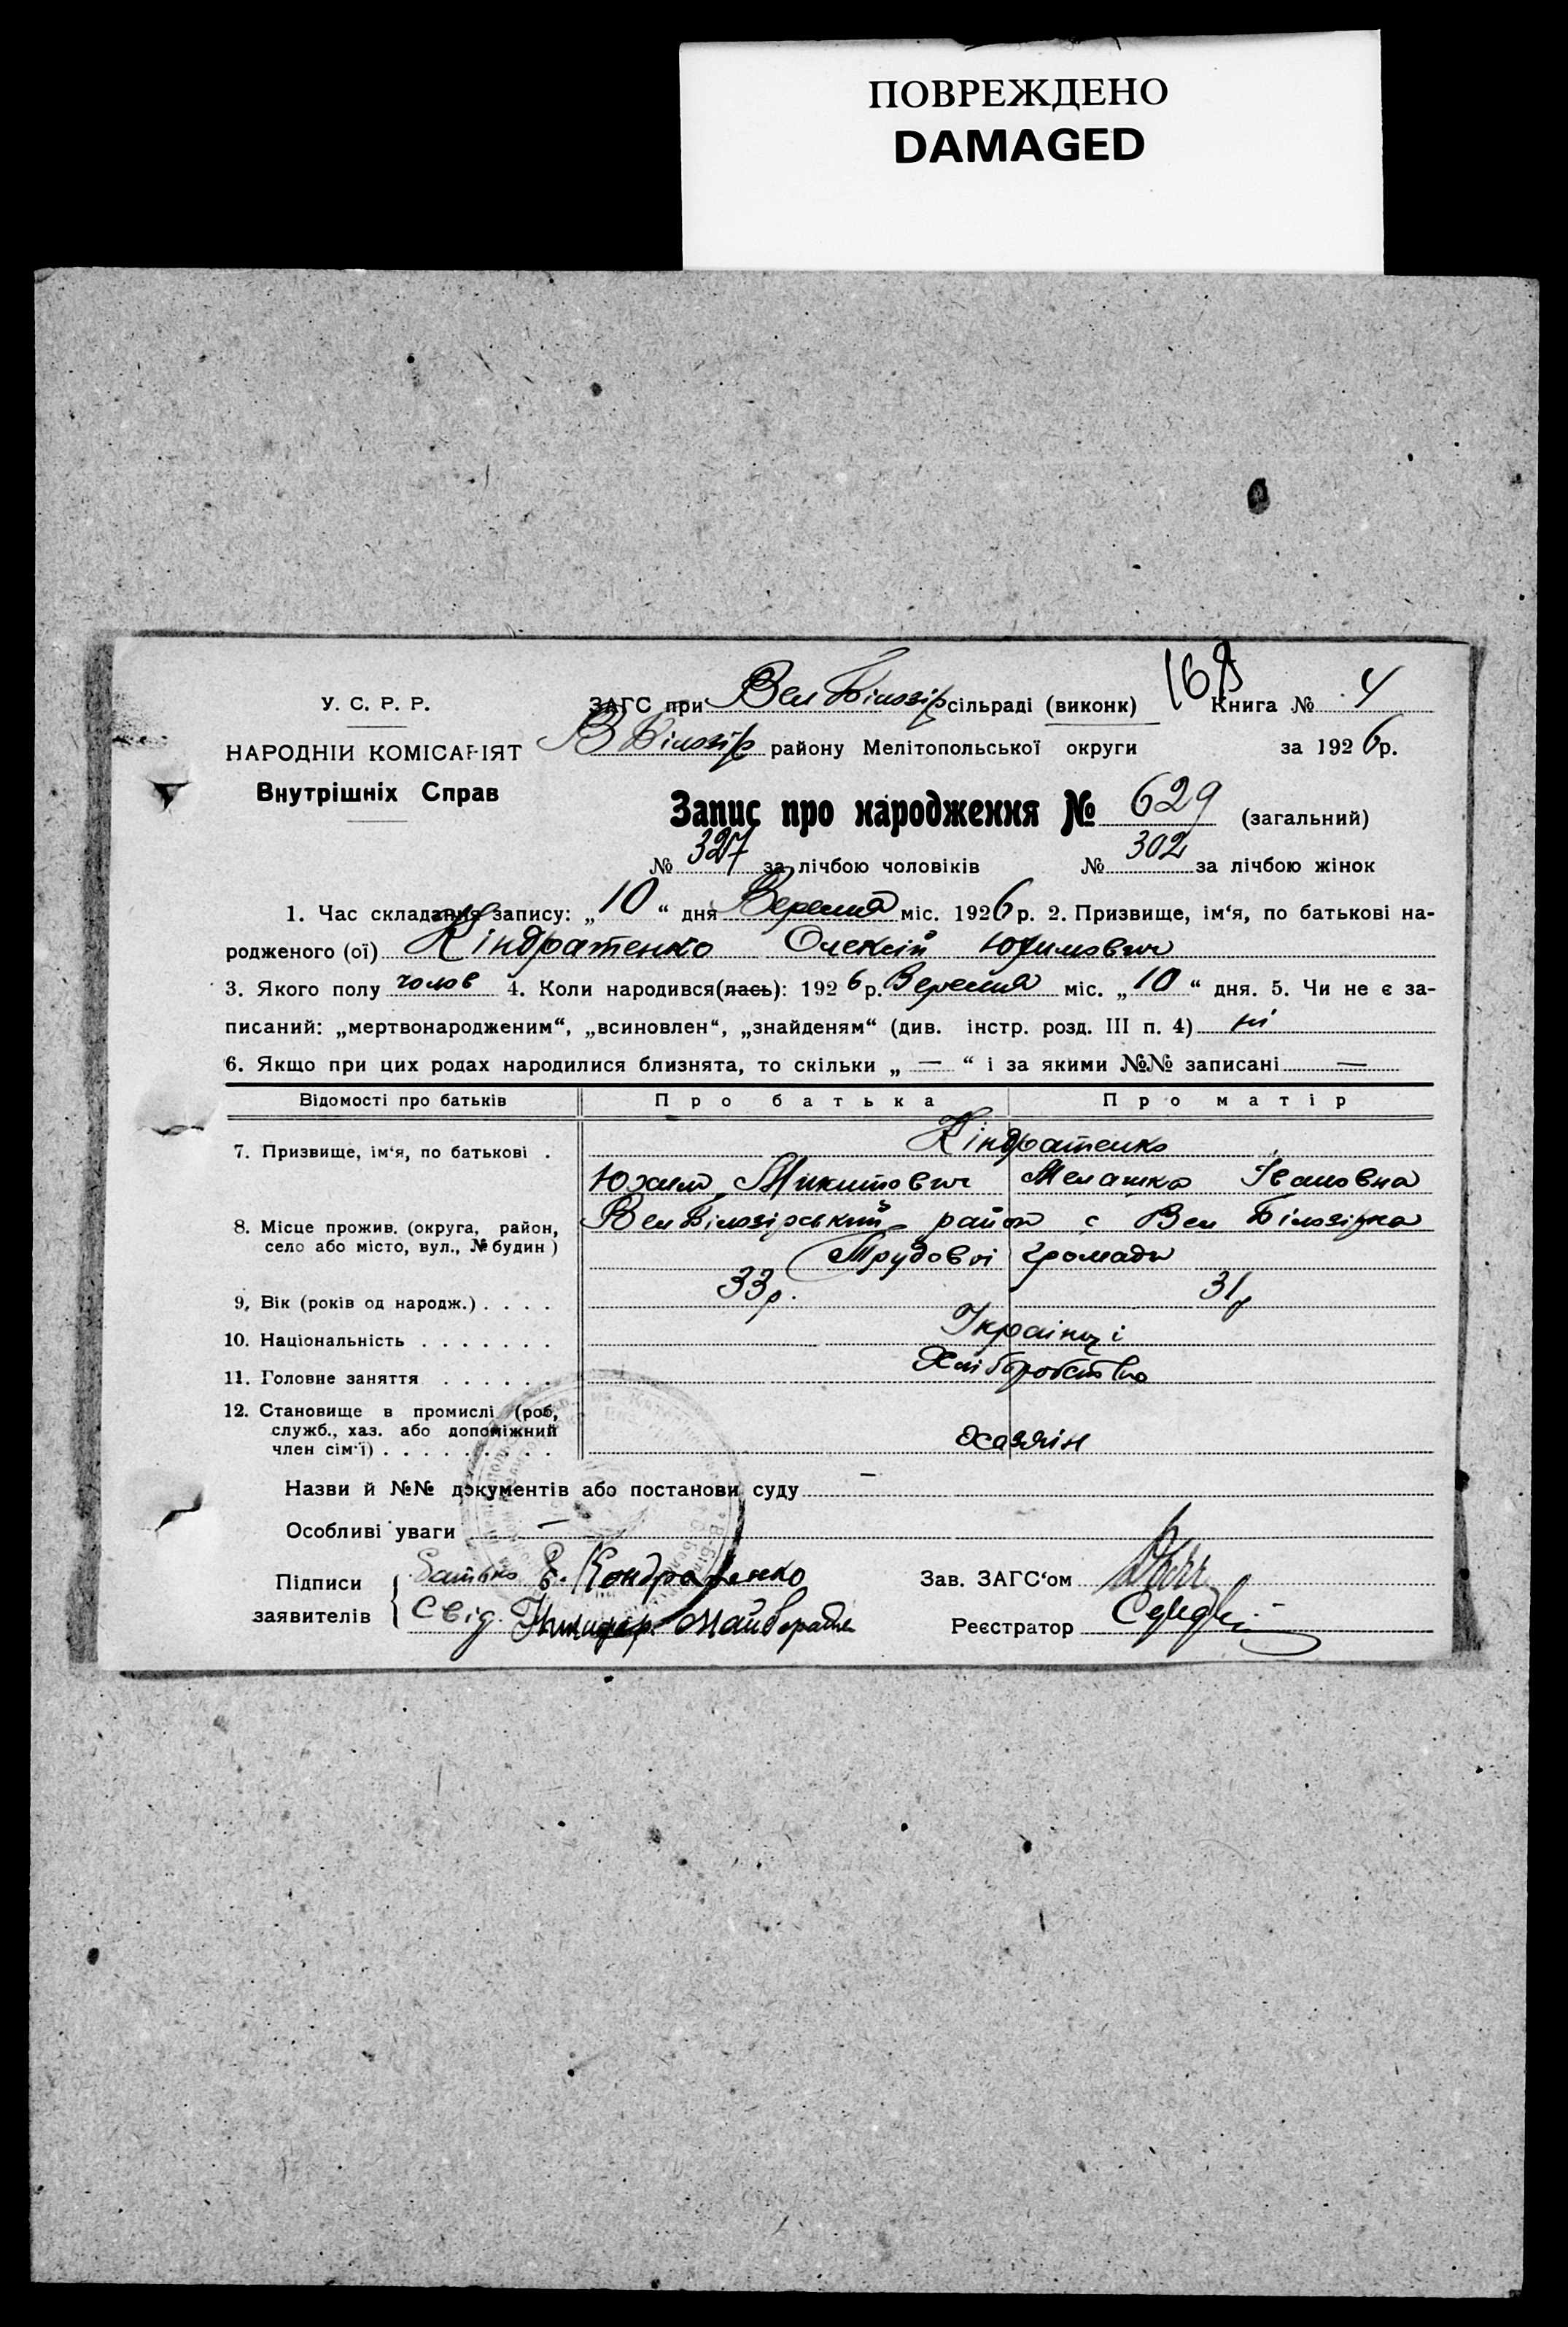 ПОВРЕЖДЕНО
DAMAGED
У. С. Р. Р.
НАРОДНІЙ КОМІСАРІЯТ
Внутрішніх Справ
ЗАГС при Вел Білозір сільраді (виконк) Книга № 4
В Білозір району Мелітопольської округи за 1926 р.
Запис про народження № 629 (загальний)
№ 327 за лічбою чоловіків № 302 за лічбою жінок
1. Час складання запису: „10“ дня Вересня міс. 1926 р. 2. Призвище, ім‘я, по батькові на-
родженого (ої) Кіндратенко Олексій Юхимович
3. Якого полу чолов 4. Коли народився(лась): 1926 р. Вересня міс. „10“ дня. 5. Чи не є за-
писаний: „мертвонародженим“, „всиновлен“, „знайденям“ (див. інстр. розд. III п. 4) ні
6. Якщо при цих родах народилися близнята, то скільки „—“ і за якими №№ записані —
Відомості про батьків Про батька Про матір
7. Призвище, ім‘я, по батькові . Кіндратенко
Юхим Микитович Мелашка Івановна
8. Місце прожив. (округа, район, село або місто, вул., № будин) Вел Білозірський район с Вел Білозірка
Трудової громади
9. Вік (років од народж.) . . . . 33 р. 31 р
10. Національність . . . . . . . Українці
11. Головне заняття . . . . . . Хліборобство
12. Становище в промислі (роб,
служб., хаз. або допоміжний
член сім‘ї) . . . . . . . . . Хазяїн
Назви й №№ документів або постанови суду —
Особливі уваги —
Підписи Батько Е. Кондратенко Зав. ЗАГС‘ом
заявителів Свід. Реєстратор